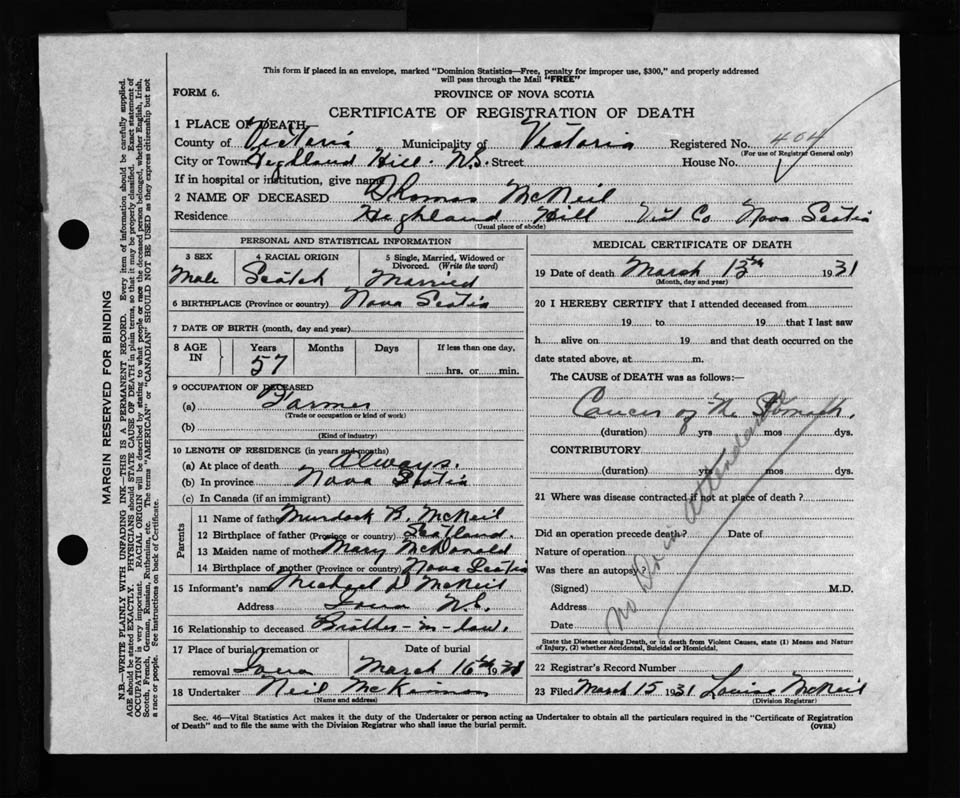 This form if placed in an envelope, marked "Dominion Statistics—Free, penalty for improper use, $300," and properly addressed
will pass through the Mail "FREE"
FORM 6.
PROVINCE OF NOVA SCOTIA
CERTIFICATE OF REGISTRATION OF DEATH
1 PLACE OF DEATH
County of Victoria Municipality of Victoria Registered No. 404
(For use of Registrar General only)
City or Town Highland Hill. N.S. Street House No.
If in hospital or institution, give name
2 NAME OF DECEASED Thomas McNeil
Residence Highland Hill Vict Co Nova Scotia
(Usual place of abode)
PERSONAL AND STATISTICAL INFORMATION
3 SEX 4 RACIAL ORIGIN 5 Single, Married, Widowed or
Divorced. (Write the word)
Male Scotch Married
6 BIRTHPLACE (Province or country) Nova Scotia
7 DATE OF BIRTH (month, day and year)
8 AGE IN Years Months Days If less than one day,
57 hrs. or min.
9 OCCUPATION OF DECEASED
(a) Farmer
(Trade or occupation or kind of work)
(b)
(Kind of industry)
10 LENGTH OF RESIDENCE (in years and months)
(a) At place of death Always.
(b) In province Nova Scotia
(c) In Canada (if an immigrant)
Parents
11 Name of father Murdock B. McNeil
12 Birthplace of father (Province or country) Scotland.
13 Maiden name of mother Mary McDonald
14 Birthplace of mother (Province or country) Nova Scotia
15 Informant's name Michael D McNeil
Address Iona N.S.
16 Relationship to deceased Brother-in-law.
17 Place of burial, cremation or Date of burial
removal Iona March 16th 1931
18 Undertaker Neil McKinnon
(Name and address)
MEDICAL CERTIFICATE OF DEATH
19 Date of death March 13th 1931
(Month, day and year)
20 I HEREBY CERTIFY that I attended deceased from
19 to 19 that I last saw
h alive on 19 and that death occurred on the
date stated above, at m.
The CAUSE of DEATH was as follows:—
Cancer of The Stomach.
(duration) yrs mos dys.
CONTRIBUTORY
(duration) yrs mos dys.
21 Where was disease contracted if not at place of death?
Did an operation precede death? Date of
Nature of operation
Was there an autopsy?
(Signed) M.D.
Address
Date
No Dr in Attendance
State the Disease causing Death, or in death from Violent Causes, state (1) Means and Nature
of Injury, (2) whether Accidental, Suicidal or Homicidal.
22 Registrar's Record Number
23 Filed March 15 1931 Louise McNeil
(Division Registrar)
Sec. 46—Vital Statistics Act makes it the duty of the Undertaker or person acting as Undertaker to obtain all the particulars required in the "Certificate of Registration
of Death" and to file the same with the Division Registrar who shall issue the burial permit.
(OVER)
MARGIN RESERVED FOR BINDING
N.B.—WRITE PLAINLY WITH UNFADING INK—THIS IS A PERMANENT RECORD. Every item of information should be carefully supplied.
AGE should be stated EXACTLY. PHYSICIANS should STATE CAUSE OF DEATH in plain terms, so that it may be properly classified. Exact statement of
OCCUPATION is very important. RACIAL ORIGIN will be described by stating to what people or race the deceased person belonged, whether English, Irish,
Scotch, French, German, Russian, Ruthenian, etc. The terms "AMERICAN" or "CANADIAN" SHOULD NOT BE USED as they express citizenship but not
a race or people. See instructions on back of Certificate.